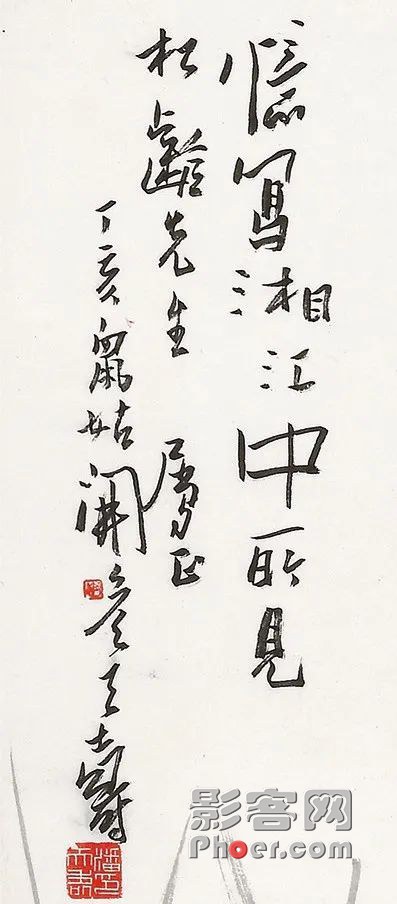 憶寫湘江中所見
松齡先生 屬正
丁亥鼠姑開 天壽
潘天壽印
影客网
Phoer.com